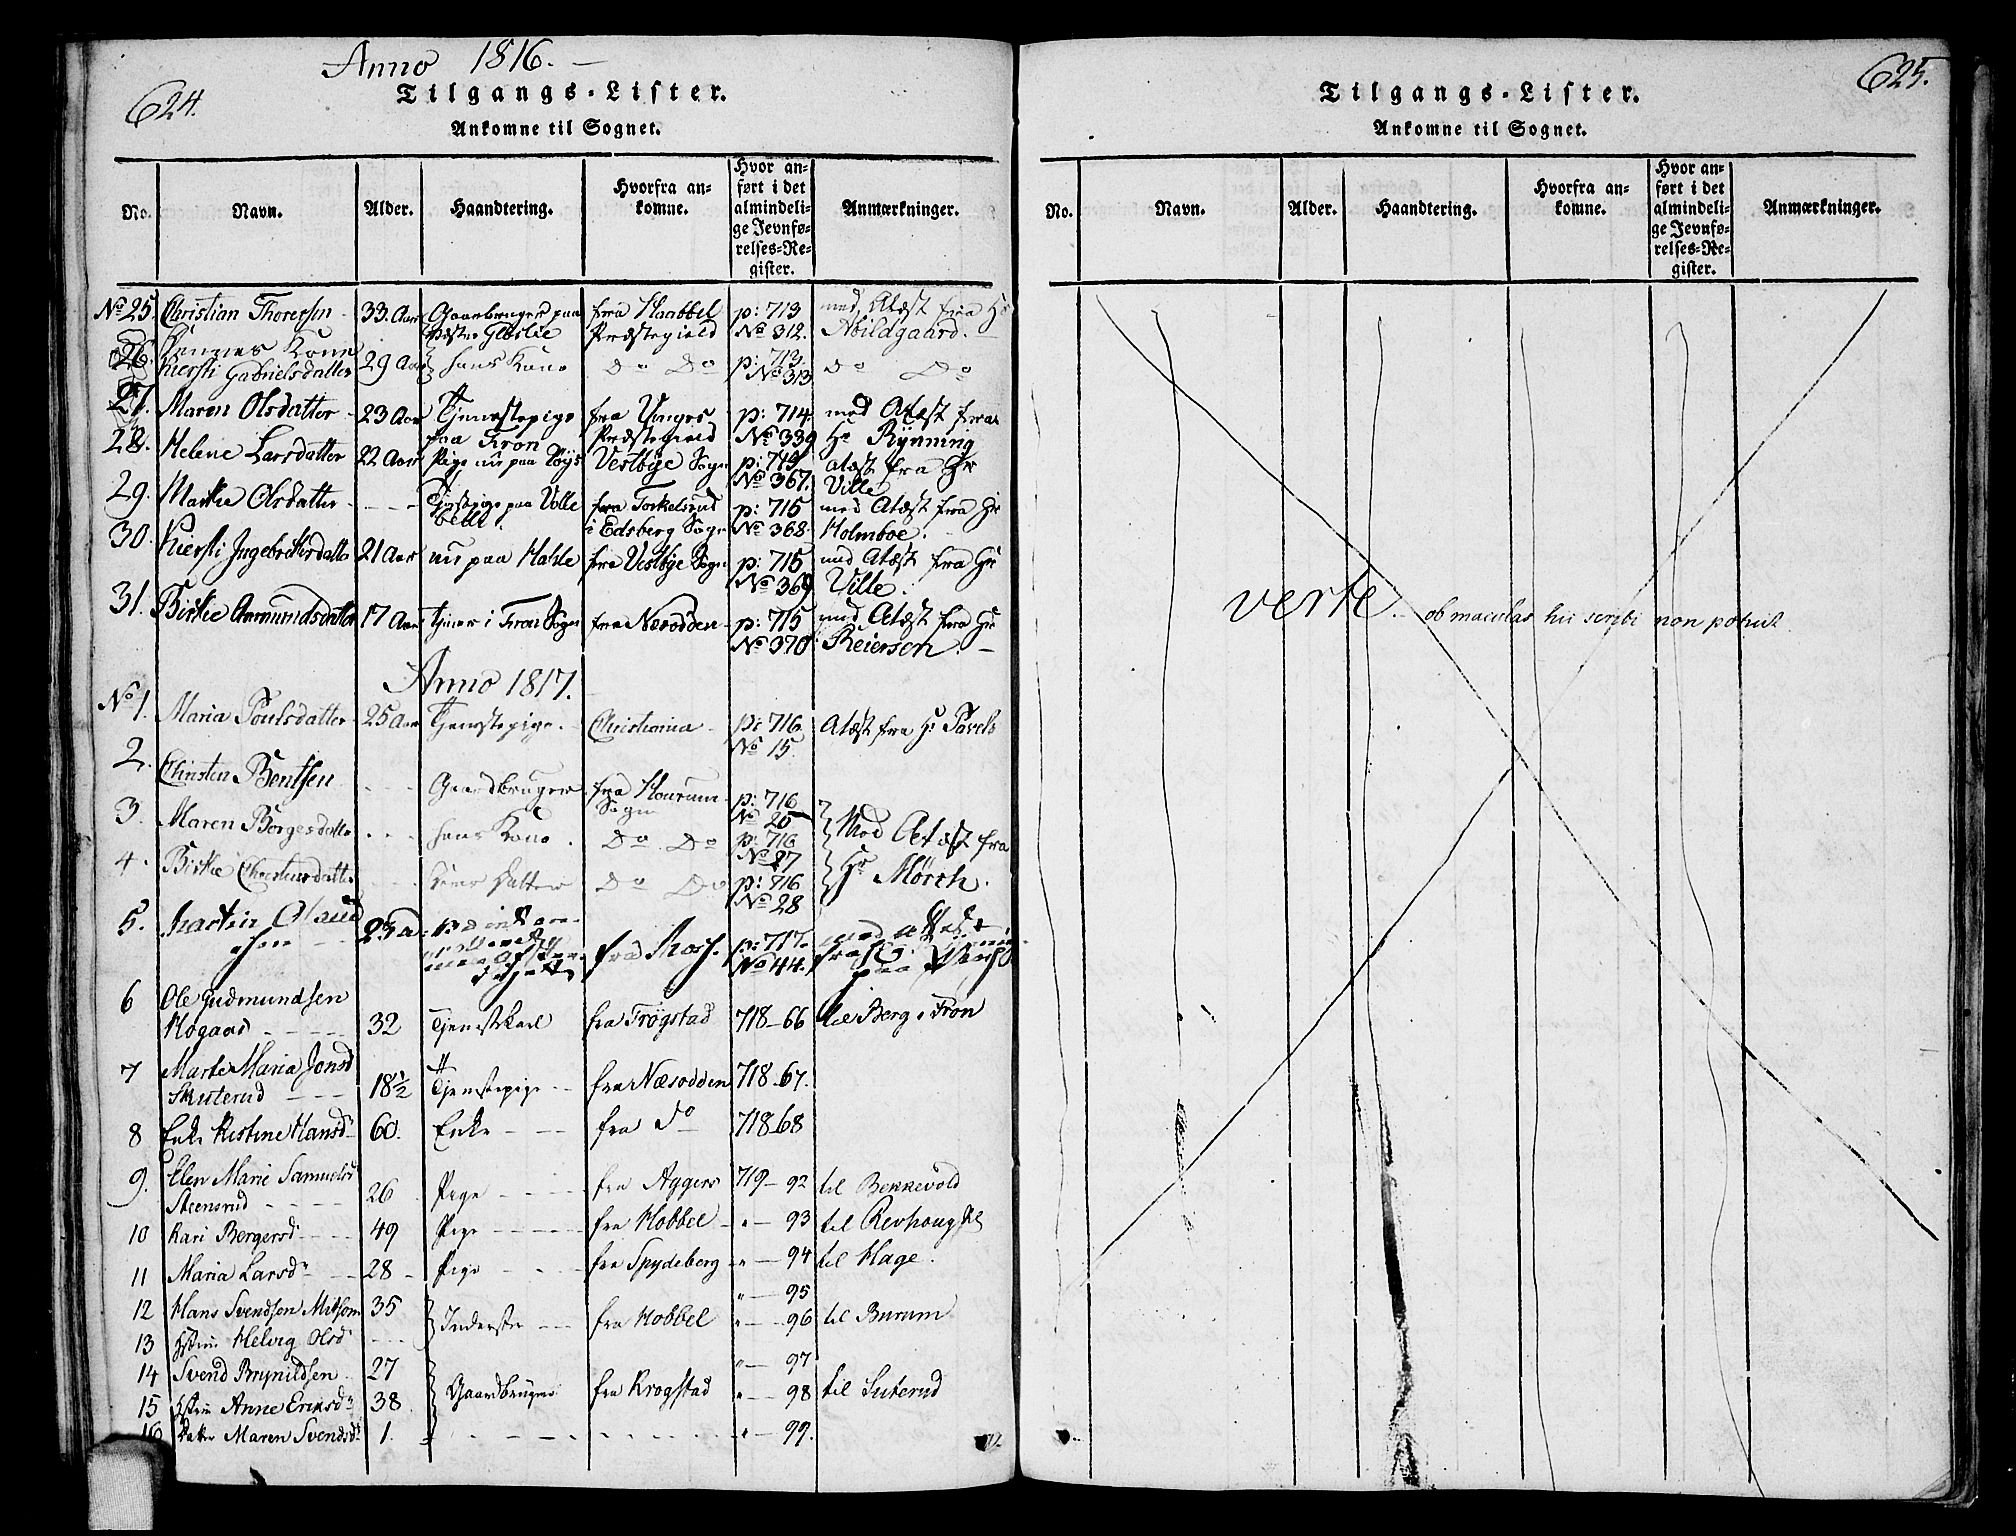 Anno 1816.
624.
Tilgangs-Lister.
Ankomne til Sognet.
No. Navn. Alder. Haandtering. Hvorfra ankomne. Hvor anført i det almindelige Jevnførelses-Register. Anmærkninger.
No 25 Christian Thoresen 33. Aar Gaardbruger paa fra Haabbel p: 713 med Atæst fra Hr
Præstegield No 312. Abildgaard.
26. Kone
Kiersti Gabrielsdatter 29 Aar hans Kone Do Do p: 713. No 313 Do Do
27. Maren Olsdatter 23 Aar Tjenestepige fra p: 714 med Atæst fra
paa Fron Præstegield No 339 Hr Rynning
28. Helene Larsdatter 22 Aar Pige nu paa Vestbye Sogn p: 715 atæst fra Hr
No 367. Ville
29. Marthe Olsdatter - - - paa fra Torkelsrud p: 715 med Atæst fra Hr
i Edsberg Sogn No 368 Holmboe.
30. Kiersti Ingebretsdatter 21 Aar nu paa fra Vestbye Sogn p: 715 med Atæst fra Hr
No 369 Ville.
31. Birthe Ammundsdatter 17 Aar tjener i Fron Sogn fra Næsodden p: 715 med Atæst fra Hr
No 370 Reiersen.
Anno 1817.
No 1. Maria Poulsdatter 25 Aar Tjenestepige Christiania p: 716 Atæst fra Hr Pavels
No 15
2. Christen Bentsen - - - Gaardbruger fra Sogn p: 716
No 26
3. Maren Borgesdatter - - - hans Kone Do Do p: 716 Med Attæst fra
No 27
4. Birthe Christensdatter - - - Datter Do Do p: 716 Hr Mørch.
No 28
5. Martin 23 a fra Moss. p: 717. med Attest
No 44. fra
paa
6 Ole Gudmundsen
Hogaas - - - 32 Tjenestkarl fra Trøgstad 718-66 til Berg i Fron
7 Marte Maria Jonsd
Skuterud - - - 18½ Tjenestepige fra Næsodden 718.67.
8 Enke Kistine Hansdr 60. Enke - - - fra do 718 68
9. Elen Marie Samuelsd
Steensrud - - - 26 Pige - - - fra Aggers 719-92 til Bekkevold
10 Kari Bergersd - - - 49 Pige - - - fra Hobbel " - 93 til Revhoug
11 Maria Larsdr - - 28 Pige - - fra Spydeberg " - 94 til Hage.
12 Hans Svendsen 35 " - 95
Inderste - - - fra Hobbel " - 96 til Burum
13 Helvig Olsd - - -
14 Svend Brynildsen 27 " - 97
15 Anne Eriksdr 38 Gaardbruger fra Krogstad " - 98 til Suterud
16 Maren Svendsdr 1. " - 99.
625.
Tilgangs-Lister.
Ankomne til Sognet.
No. Navn. Alder. Haandtering. Hvorfra ankomne. Hvor anført i det almindelige Jevnførelses-Register. Anmærkninger.
verte. ob maculas hic scribi non potuit.